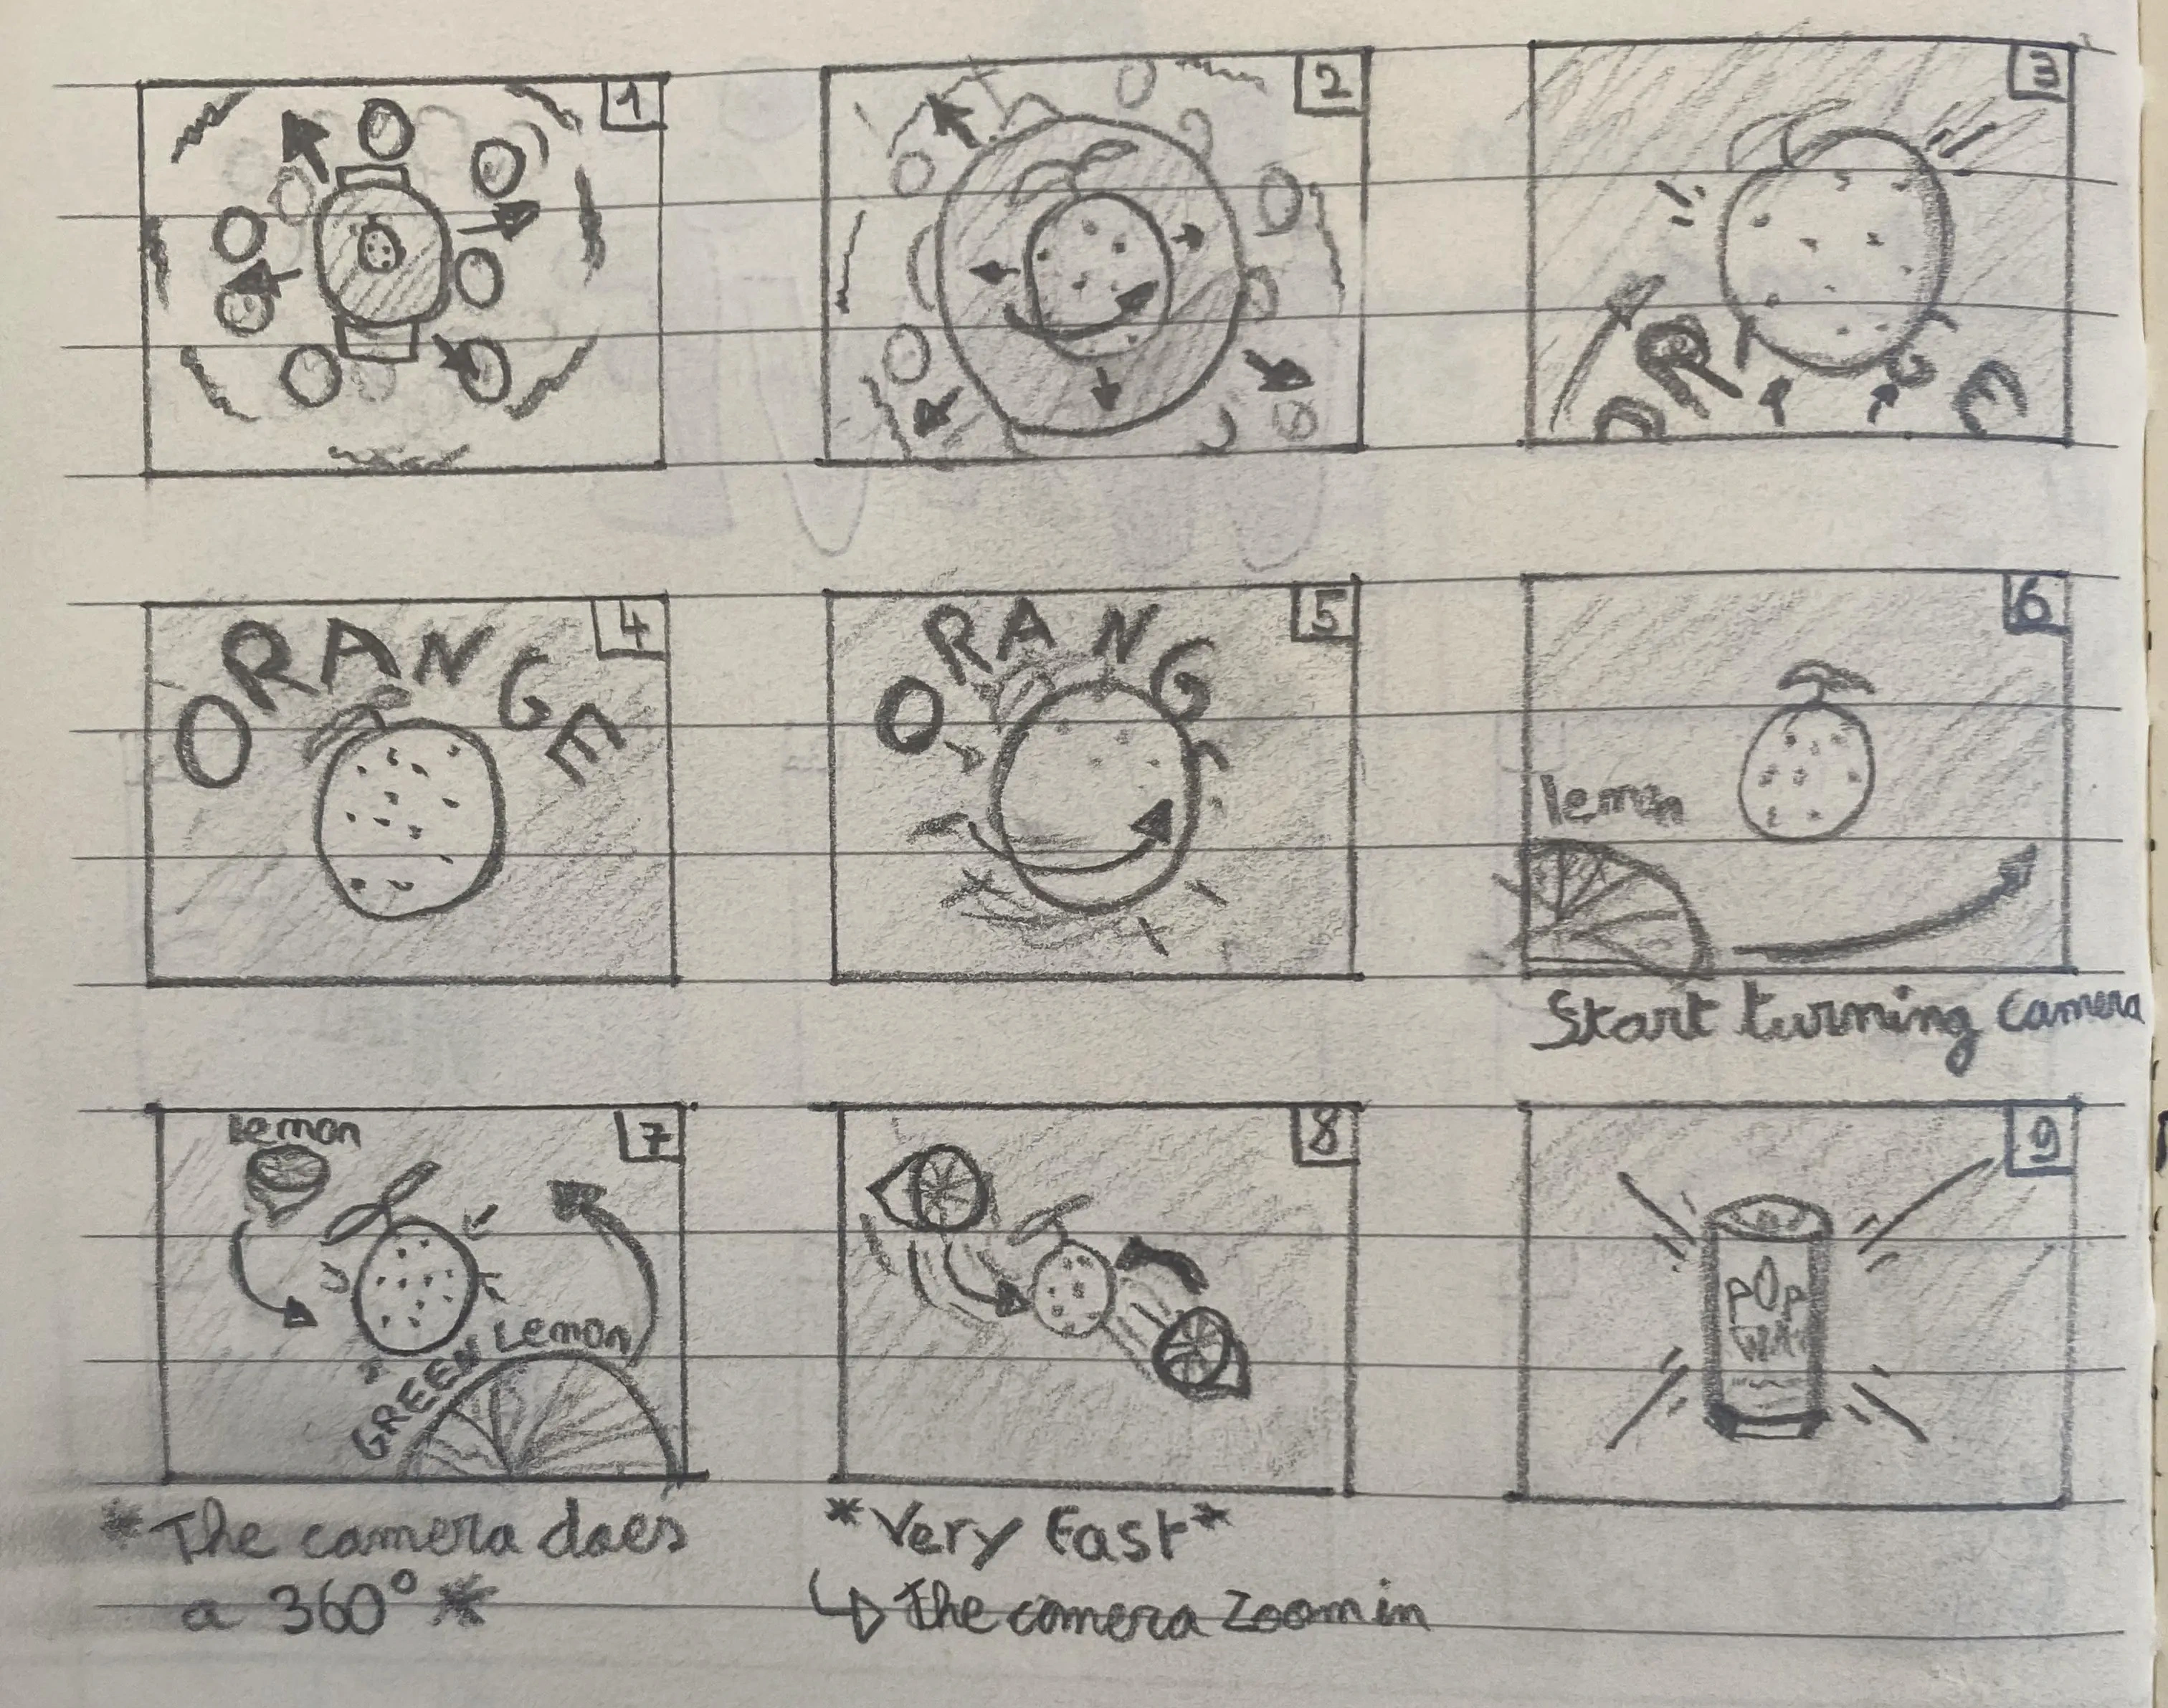 1
2
3
OR G E
4
ORANGE
5
ORANG
6
lemon
Start turning camera
7
lemon
GREEN Lemon
*The camera does
a 360°*
8
*Very Fast*
↳ The camera Zoom in
9
POP